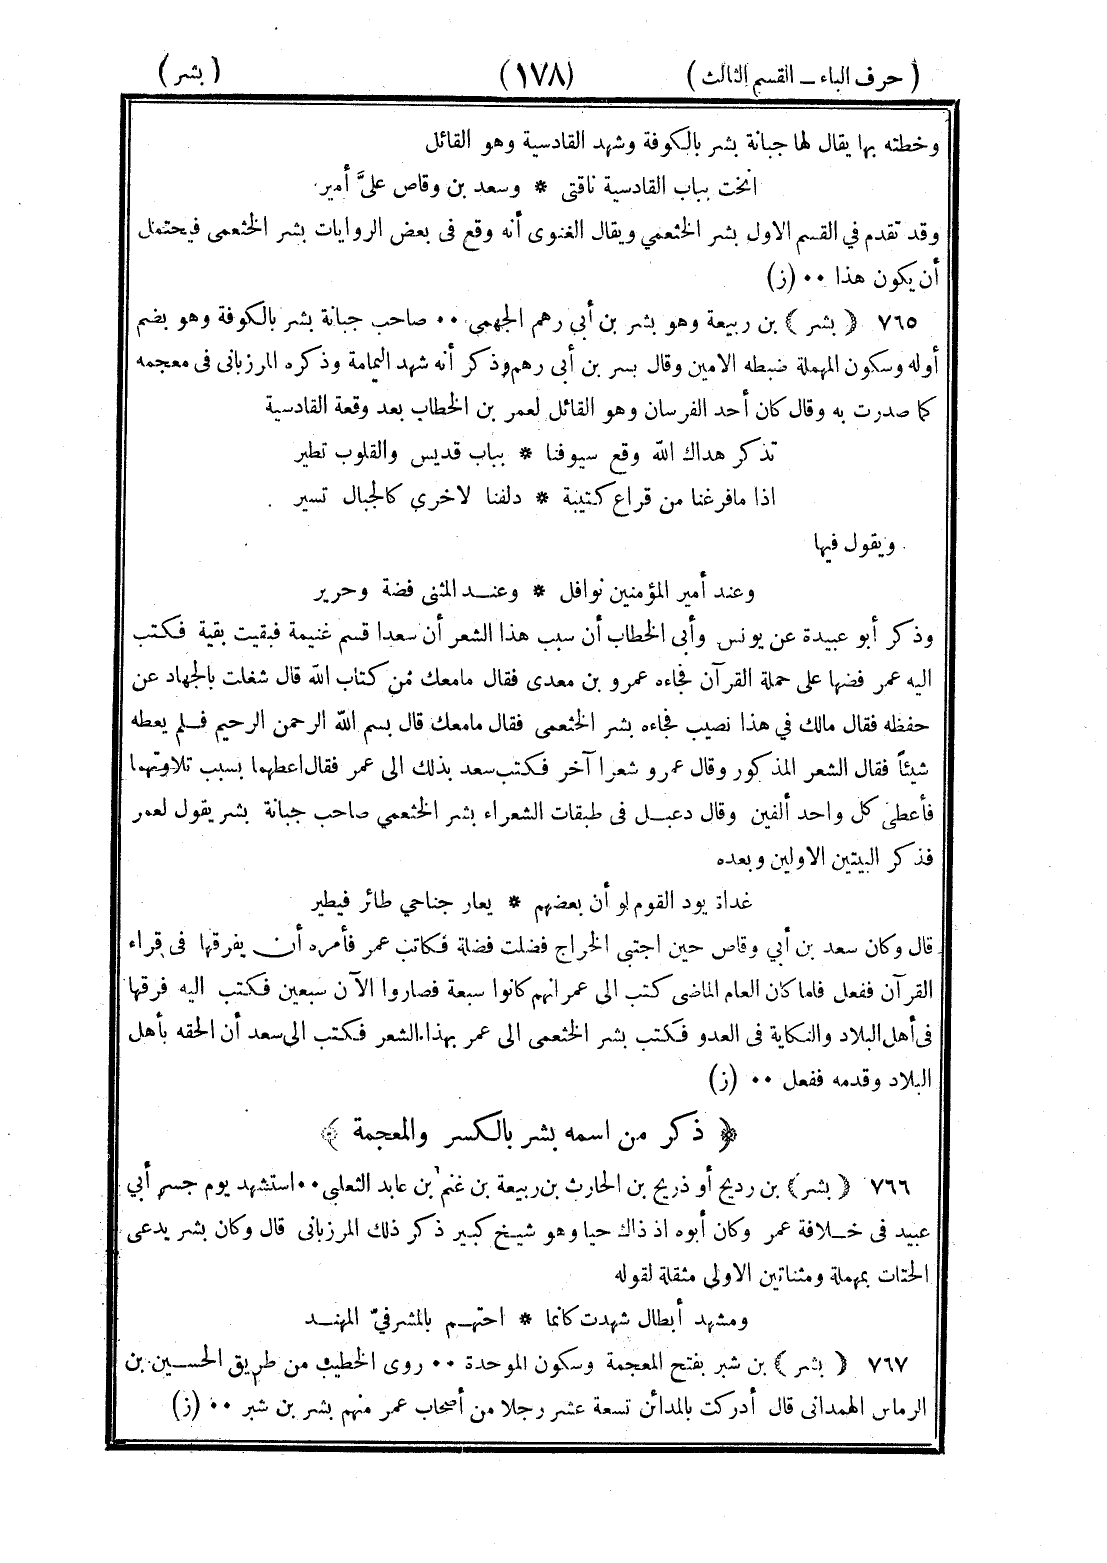 ( حرف الباء ــ القسم الثالث ) (١٧٨) ( بشر )
وخطته بها يقال لها جبانة بشر بالكوفة وشهد القادسية وهو القائل
انخت بباب القادسية ناقتى * وسعد بن وقاص علىَّ أمير
وقد تقدم في القسم الاول بشر الخثعمي ويقال الغنوى أنه وقع فى بعض الروايات بشر الخثعمى فيحتمل
أن يكون هذا ٠٠ (ز)
٧٦٥ ﴿ بشر ﴾ بن ربيعة وهو بشر بن أبي رهم الجهمى ٠٠ صاحب جبانة بشر بالكوفة وهو بضم
أوله وسكون المهملة ضبطه الامين وقال بسر بن أبى رهم وذكر أنه شهد اليمامة وذكره المرزبانى فى معجمه
كما صدرت به وقال كان أحد الفرسان وهو القائل لعمر بن الخطاب بعد وقعة القادسية
تذكر هداك الله وقع سيوفنا * بباب قديس والقلوب تطير
اذا مافرغنا من قراع كتيبة * دلفنا لاخرى كالجبال تسير
ويقول فيها
وعند أمير المؤمنين نوافل * وعنــد المثنى فضة وحرير
وذكر أبو عبيدة عن يونس وأبى الخطاب أن سبب هذا الشعر أن سعدا قسم غنيمة فبقيت بقية فكتب
اليه عمر فضها على حملة القرآن فجاءه عمرو بن معدى فقال مامعك من كتاب الله قال شغلت بالجهاد عن
حفظه فقال مالك في هذا نصيب فجاءه بشر الخثعمى فقال مامعك قال بسم الله الرحمن الرحيم فلم يعطه
شيئاً فقال الشعر المذكور وقال عمرو شعرا آخر فكتب سعد بذلك الى عمر فقال اعطهما بسبب تلاوتهما
فأعطى كل واحد ألفين وقال دعبــل فى طبقات الشعراء بشر الخثعمي صاحب جبانة بشر يقول لعمر
فذكر البيتين الاولين وبعده
غداة يود القوم لو أن بعضهم * يعار جناحي طائر فيطير
قال وكان سعد بن أبي وقاص حين اجتبى الخراج فضلت فضلة فكاتب عمر فأمره أن يفرقها فى قراء
القرآن ففعل فلما كان العام الماضى كتب الى عمر انهم كانوا سبعة فصاروا الآن سبعين فكتب اليه فرقها
فى أهل البلاد والنكاية فى العدو فكتب بشر الخثعمى الى عمر بهذا الشعر فكتب الى سعد أن الحقه بأهل
البلاد وقدمه ففعل ٠٠ (ز)
﴿ ذكر من اسمه بشر بالكسر والمعجمة ﴾
٧٦٦ ﴿ بشر ﴾ بن رديح أو ذريح بن الحارث بن ربيعة بن غنم بن عابد الثعلبى ٠٠ استشهد يوم جسر أبي
عبيد فى خــلافة عمر وكان أبوه اذ ذاك حيا وهو شيخ كبير ذكر ذلك المرزبانى قال وكان بشر يدعى
الحتات بمهملة ومثناتين الاولى مثقلة لقوله
ومشهد أبطال شهدت كانما * احتهــم بالمشرفيّ المهنــد
٧٦٧ ﴿ بشر ﴾ بن شبر بفتح المعجمة وسكون الموحدة ٠٠ روى الخطيب من طريق الحسين بن
الرماس الهمدانى قال أدركت بالمدائن تسعة عشر رجلا من أصحاب عمر منهم بشر بن شبر ٠٠ (ز)